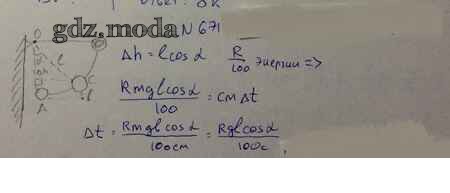 Ответ: 0К
gdz.moda N 671
Δh = l cos α R/100 энергии =>
Rmgl cos α / 100 = cm Δt
Δt = Rmgl cos α / 100cm = Rgl cos α / 100c
O
l
C
A
l